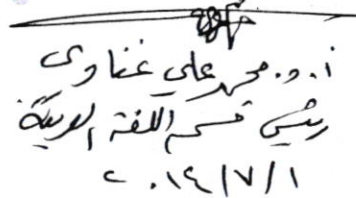 أ.د. محمد علي غناوي
رئيس قسم اللغة العربية
٢٠١٤/٧/١